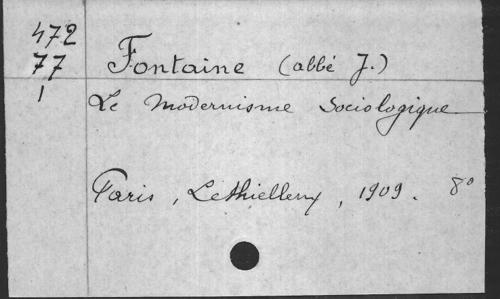 472
77
1
Fontaine (abbé J.)
Le Modernisme Sociologique
Paris, Lethielleux, 1909. 8°